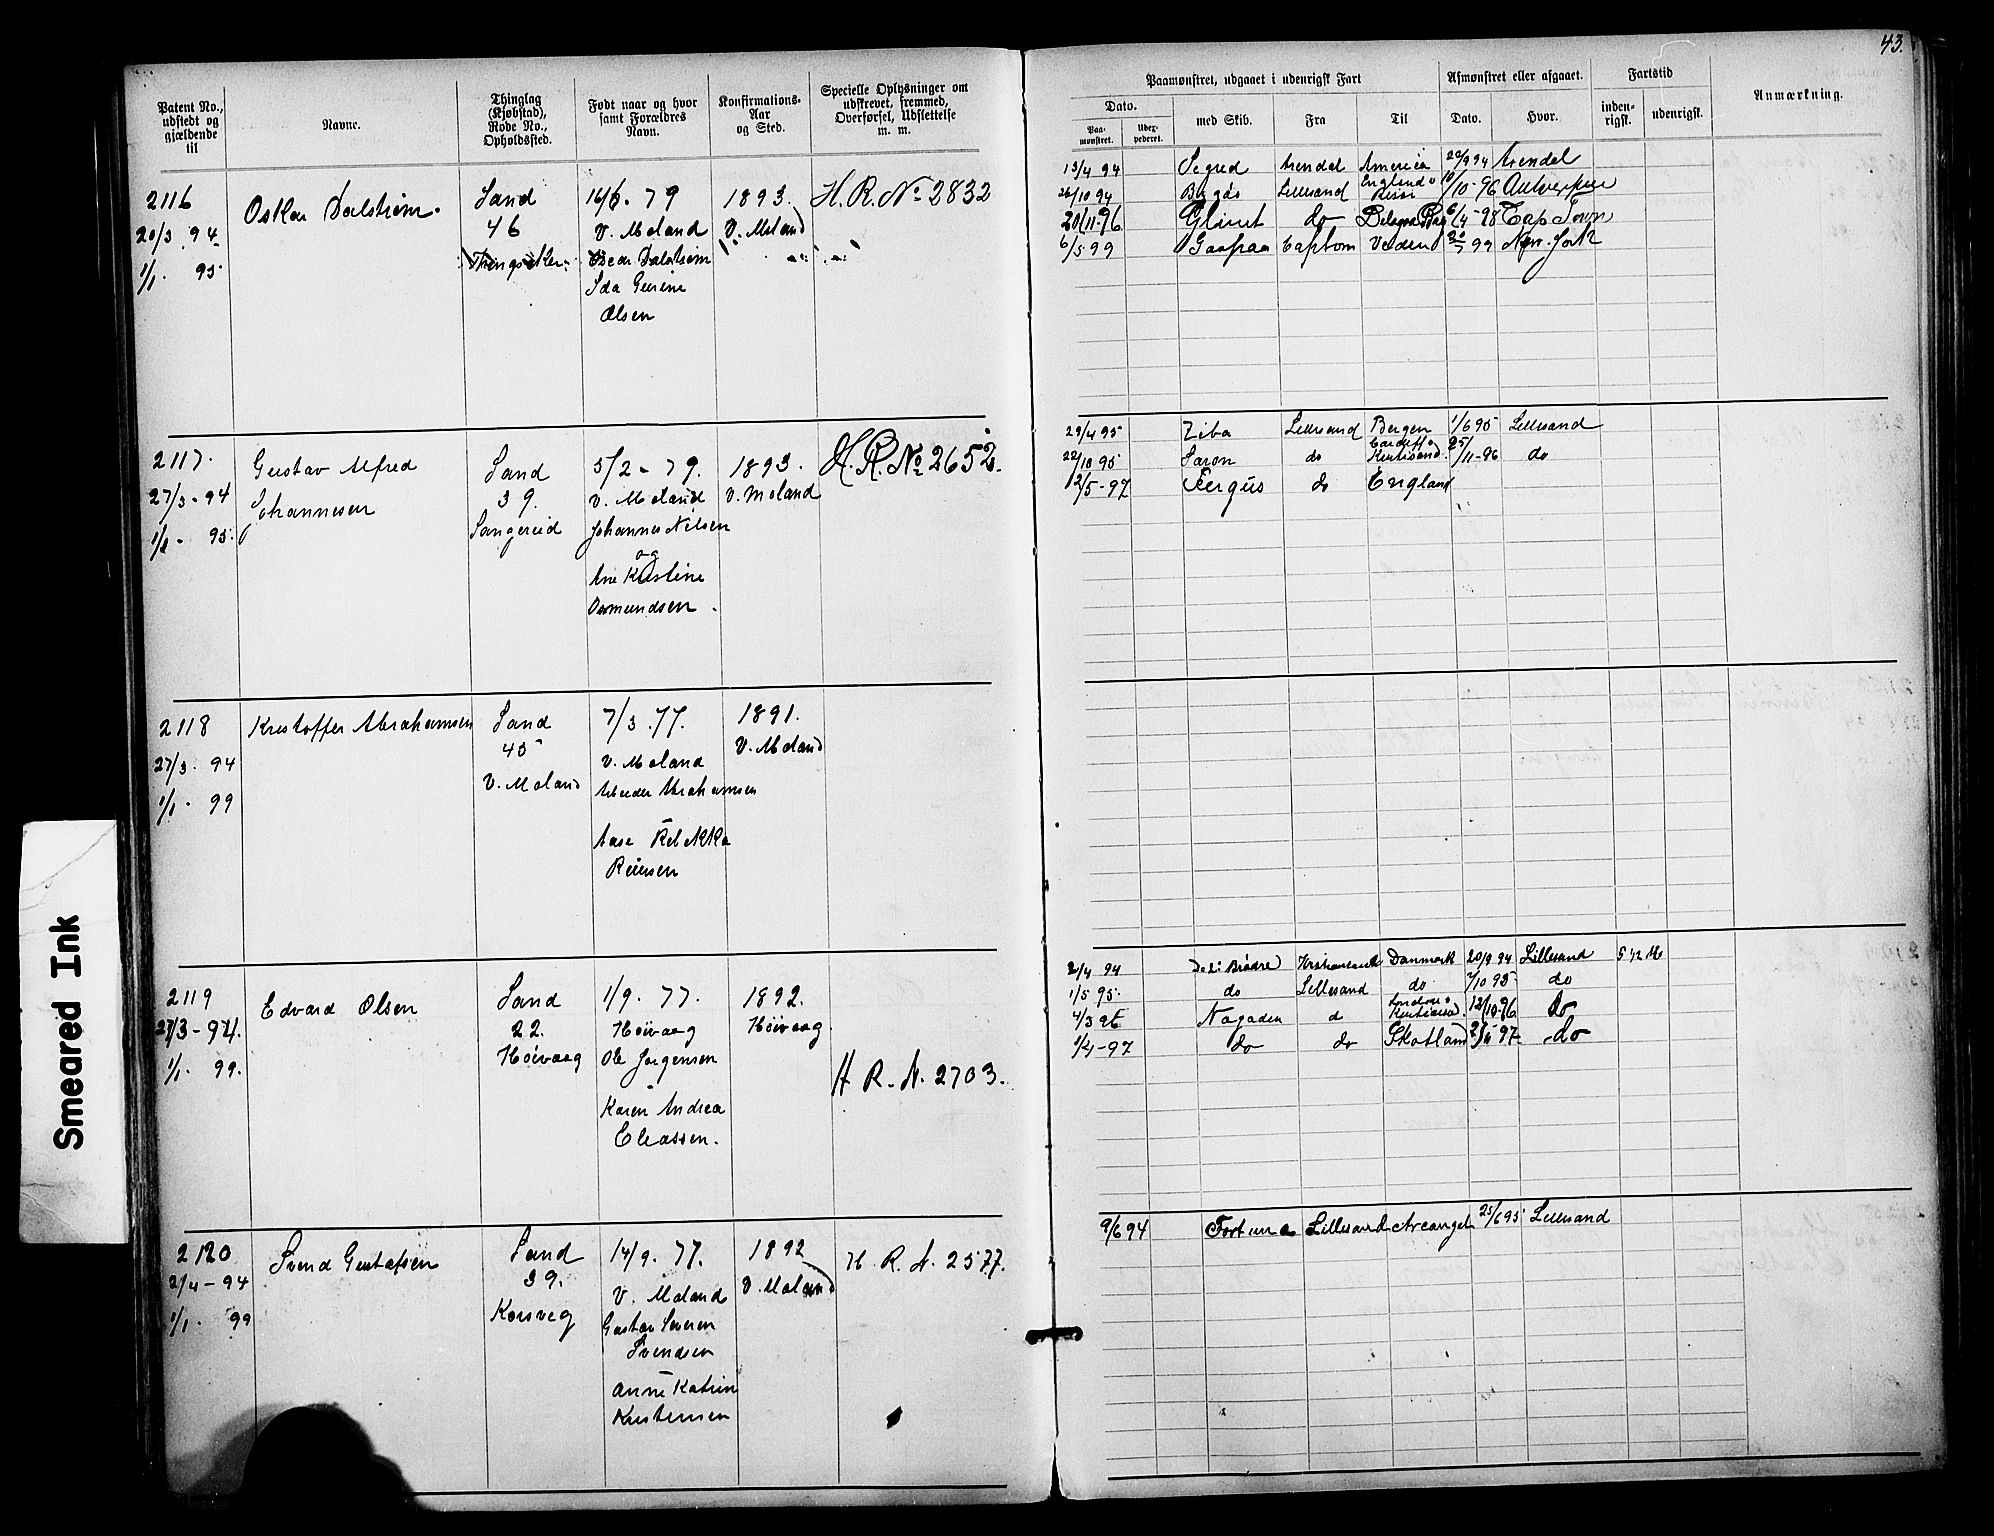 43.
Patent No., udstedt og gjældende til
Navne.
Thinglag (Kjøbstad), Rode No., Opholdssted.
Født naar og hvor samt Forældres Navn.
Konfirmations-Aar og Sted.
Specielle Oplysninger om udskrevet, fremmed, Overførsel, Udslettelse m. m.
Paamønstret, udgaaet i udenrigsk Fart
Afmønstret eller afgaaet.
Fartstid
Anmærkning.
Dato.
Paa-mønstret.
Uder-pederet.
med Skib.
Fra
Til
Dato.
Hvor.
inden-rigsk.
udenrigsk.
2116
20/3 94
1/1 95
Oskar Dalstrøm.
Sand
46
16/6. 79
V. Moland
Oscar Dalstrøm
Ida Gurine
Olsen
1893.
V. Moland
H. R. No 2832
13/4 94 Sigred Arendal America 20/9 94 Arendal
26/10 94 Lillesand England 10/10-96 Antverpen
20/11-96 Glimt do Delagoa Bay 6/4-98 Cap Town
6/5 99 Captom 99 New-York
2117.
27/3-94
1/1- 95.
Gustav Alfred
Johannesen
Sand
39.
Sangereid
5/2-79.
V. Moland
Johannes Nilsen
og
Ane Kristine
Osmundsen.
1893.
V. Moland
H. R. No 2652.
29/4 95 Ziba Lillesand Bergen 1/6 95 Lillesand
22/10 95 Saron do Cardiff Kristisand. 25/11-96 do
12/5-97 Fergus do England
2118
27/3. 94
1/1. 99
Kristoffer Abrahamsen
Sand
45
V. Moland
7/3. 77.
V. Moland
Arbeider Abrahamsen
Aase Rebekka
Reiersen
1891.
V. Moland
2119
27/3-94.
1/1. 99.
Edvard Olsen
Sand
22.
Høivaag
1/9. 77.
Høivaag
Ole Jørgensen
Karen Andrea
Eleassen.
1892.
Høivaag
H R. N. 2703.
2/4 94 De 2 Brødre Kristiansand Danmark 20/9 94 Lillesand
1/5 95. do Lillesand do 7/10 95 do
4/3 96 Nagaden d London 12/10-96 do
1/4-97 do do Skotland 97 do
2120
2/4-94
1/1. 99
Svend Gustafsen
Sand
39.
Korsveg
14/9. 77.
V. Moland
Gustav Severin
Svendsen
Anne Katrin
Kristensen
1892
V. Moland
H. R. N. 2577.
9/6 94 Fortuna Lillesand Arcangel 25/6 95 Lillesand
Smeared Ink